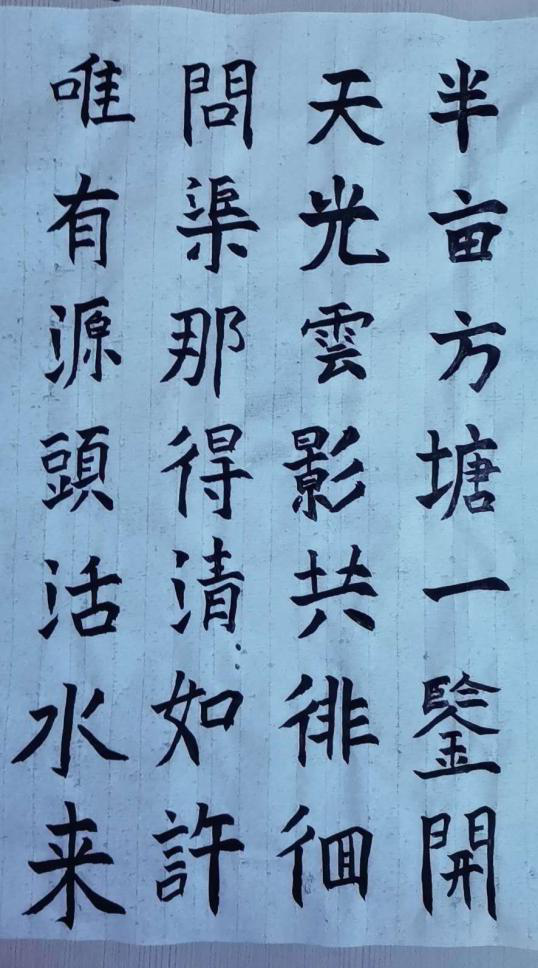 半亩方塘一鑒開
天光雲影共徘徊
問渠那得清如許
唯有源頭活水来